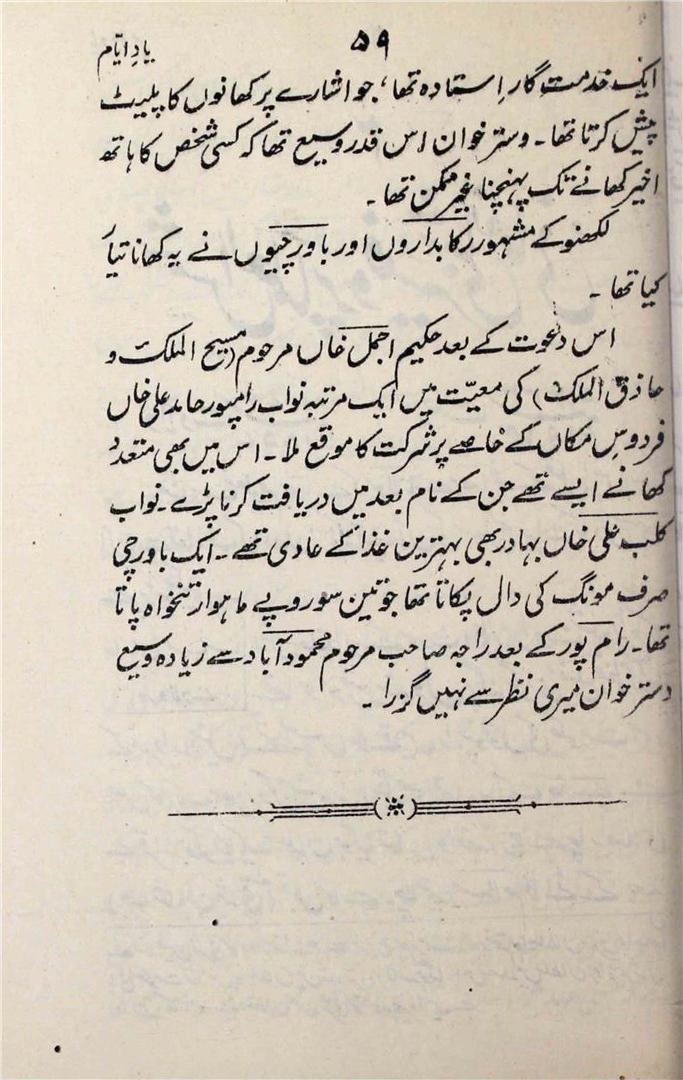 ۵۹
یادِ ایّام
ایک خدمت گار اِستادہ تھا، جو اشارے پر کھانوں کا پلیٹ
پیش کرتا تھا۔ دستر خوان اس قدر وسیع تھا کہ کسی شخص کا ہاتھ
اخیر کھانے تک پہنچنا غیر ممکن تھا۔
لکھنؤ کے مشہور رکابداروں اور باورچیوں نے یہ کھانا تیار
کیا تھا۔
اس دعوت کے بعد حکیم اجمل خاں مرحوم (مسیح الملک و
حاذق الملک) کی معیّت میں ایک مرتبہ نواب رامپور حامد علی خاں
فردوس مکاں کے خاصے پر شرکت کا موقع ملا۔ اس میں بھی متعدد
کھانے ایسے تھے جن کے نام بعد میں دریافت کرنا پڑے۔ نواب
کلب علی خاں بہادر بھی بہترین غذا کے عادی تھے۔ ایک باورچی
صرف مونگ کی دال پکاتا تھا جو تین سو روپے ماہوار تنخواہ پاتا
تھا۔ رام پور کے بعد راجہ صاحب مرحوم محمود آباد سے زیادہ وسیع
دستر خوان میری نظر سے نہیں گزرا۔